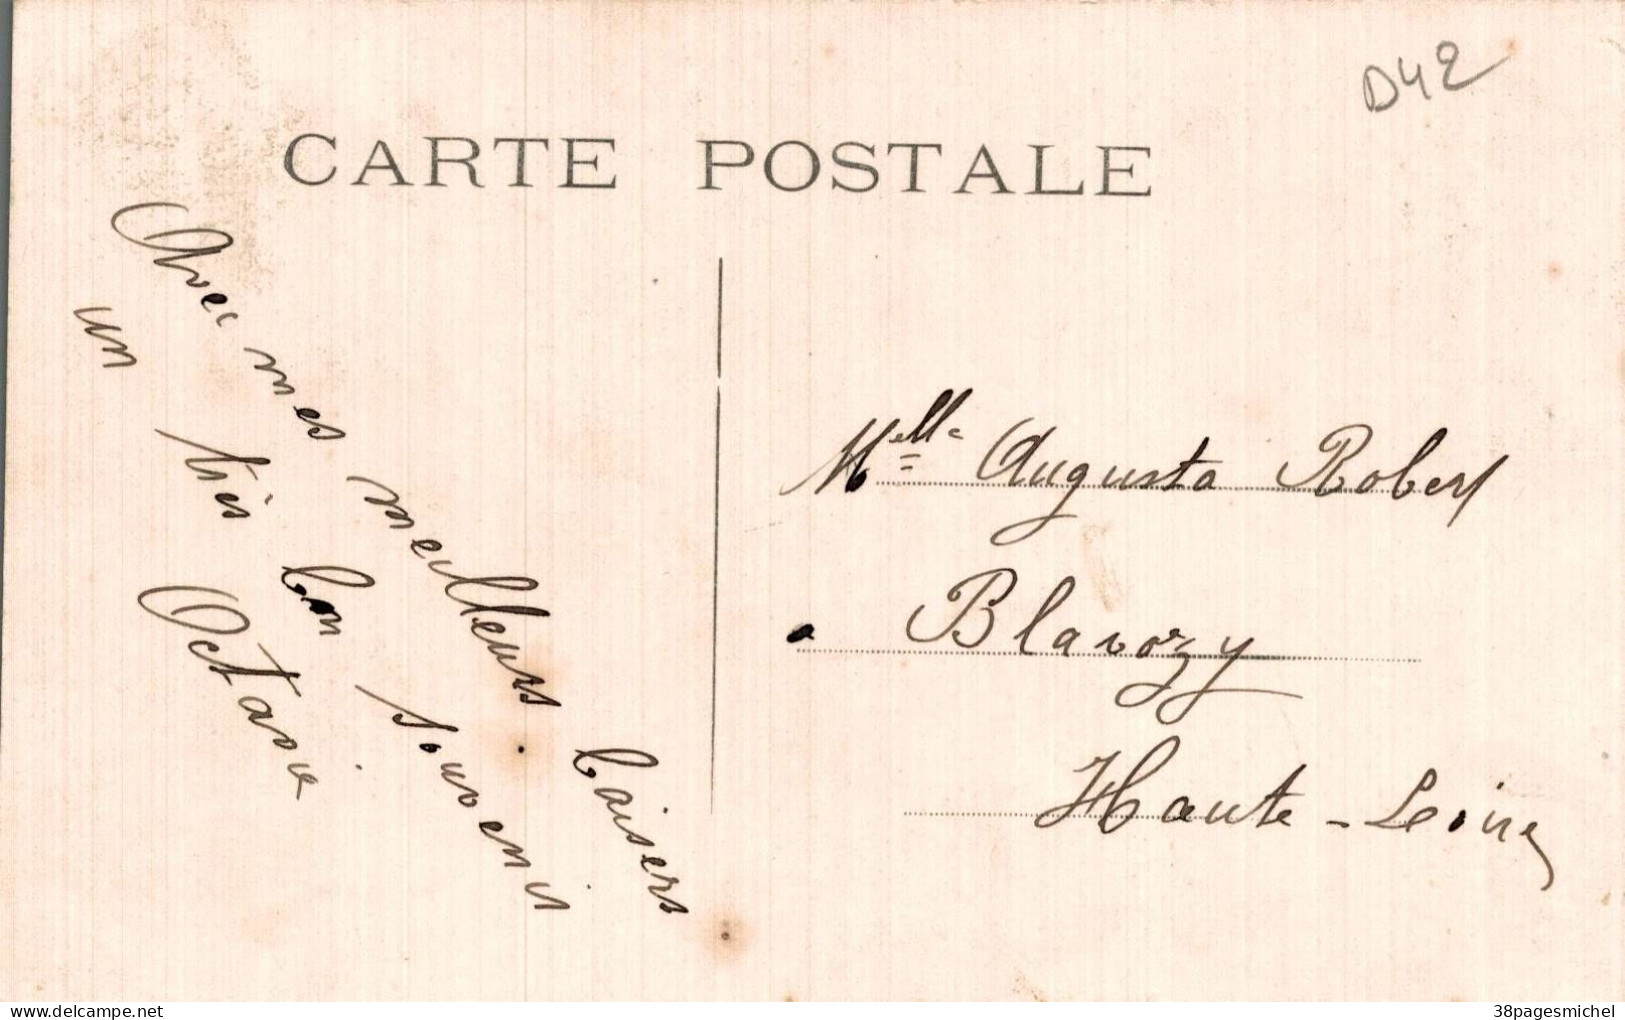 D42
CARTE POSTALE
Avec mes meilleurs baisers
un très bon souvenir
Octavie
Melle Augusta Robert
a Blavozy
Haute-Loire
delcampe.net
38pagesmichel